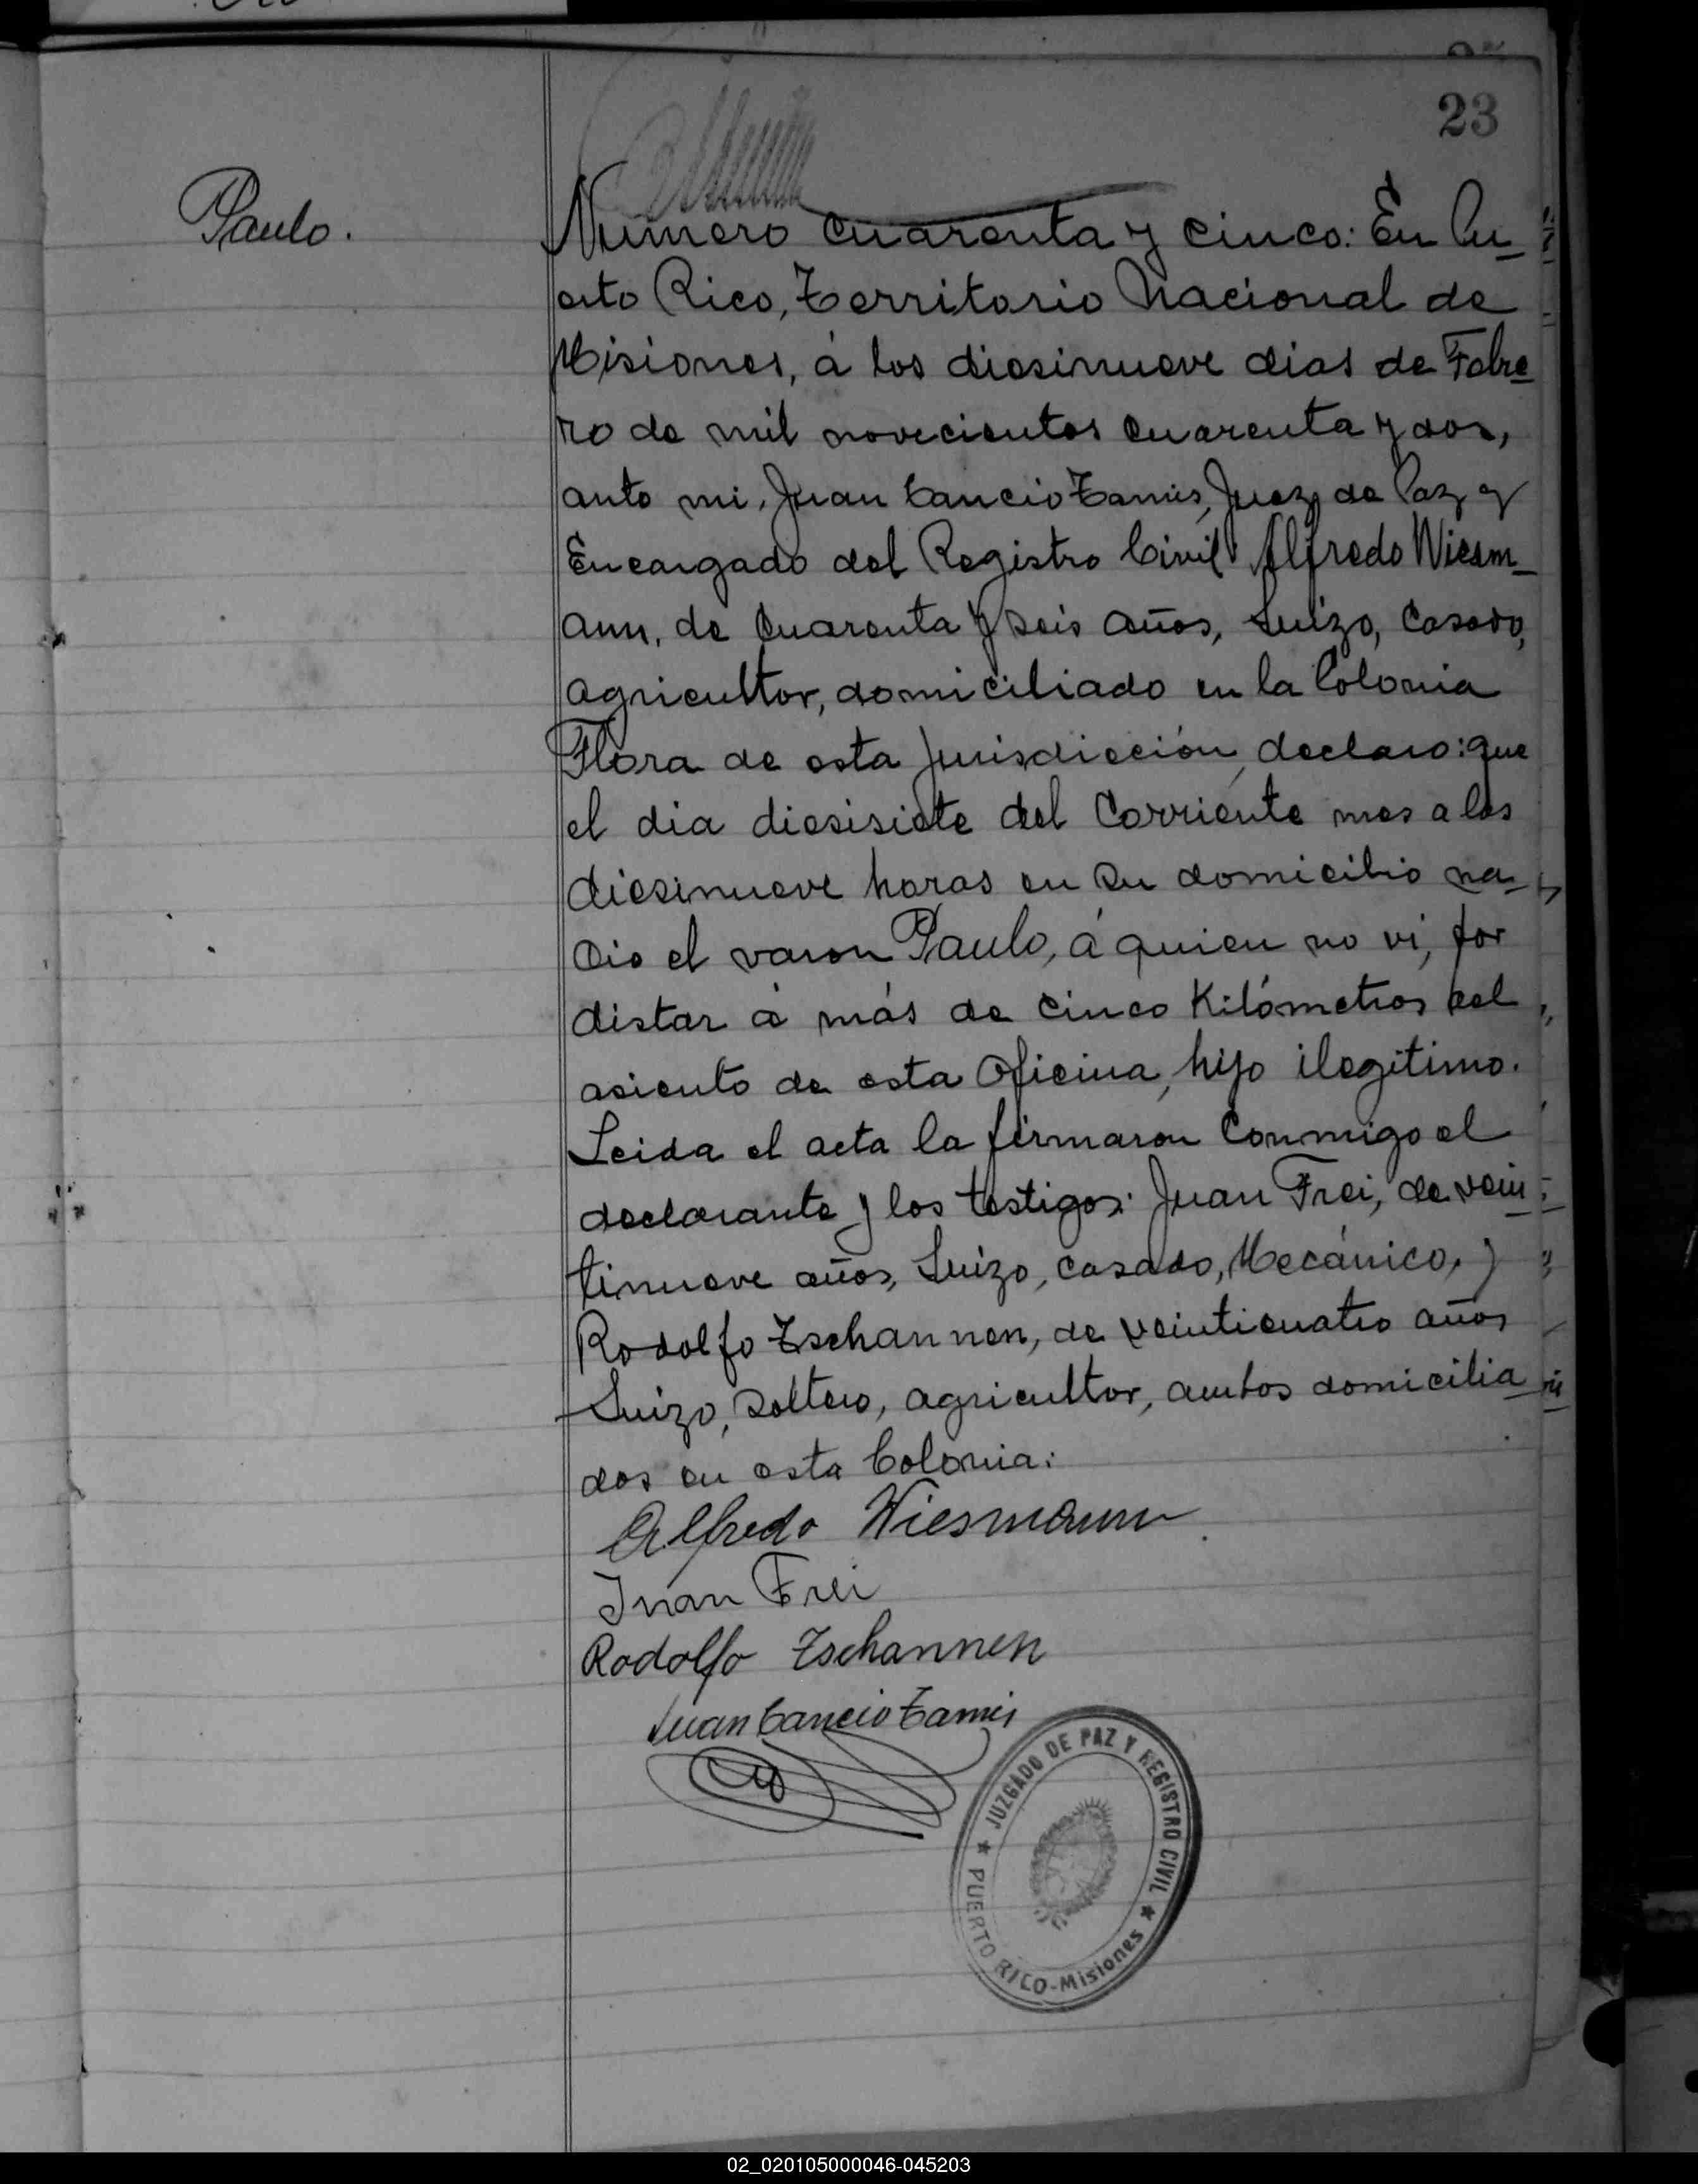 23
Paulo.
Numero cuarenta y cinco: En Pu_
erto Rico, Territorio Nacional de
Misiones, á los diesinueve dias de Febre
ro de mil novecientos cuarenta y dos,
ante mi, Juan Cancio Tamis, Juez de Paz y
Encargado del Registro Civil Alfredo Wiesm_
ann, de cuarenta y seis años, Suizo, Casado,
agricultor, domiciliado en la Colonia
Flora de esta jurisdicción, declaro: que
el dia diesisiete del Corriente mes a las
diesinueve horas en su domicilio na_
cio el varon Paulo, á quien no vi, por
distar á más de cinco Kilómetros del
asiento de esta Oficina, hijo ilegitimo.
Leida el acta la firmaron Conmigo el
declarante y los testigos: Juan Frei, de vein_
tinueve años, Suizo, casado, Mecánico, y
Rodolfo Zschannen, de veinticuatro años
Suizo, Soltero, agricultor, ambos domicilia_
dos en esta Colonia:
Alfredo Wiesmann
Juan Frei
Rodolfo Zschannen
Juan Cancio Tamis
JUZGADO DE PAZ Y REGISTRO CIVIL
PUERTO RICO-Misiones
02_020105000046-045203